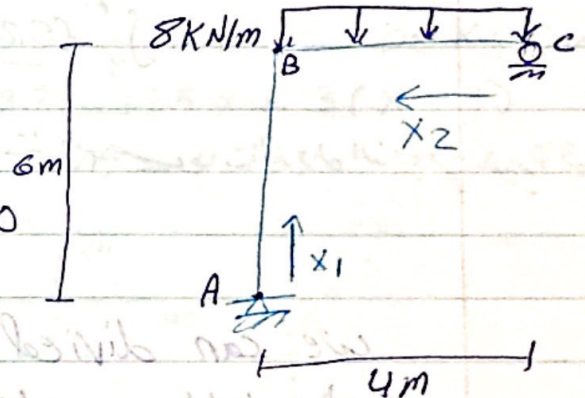 8KN/m
B
C
X2
6m
X1
A
4m